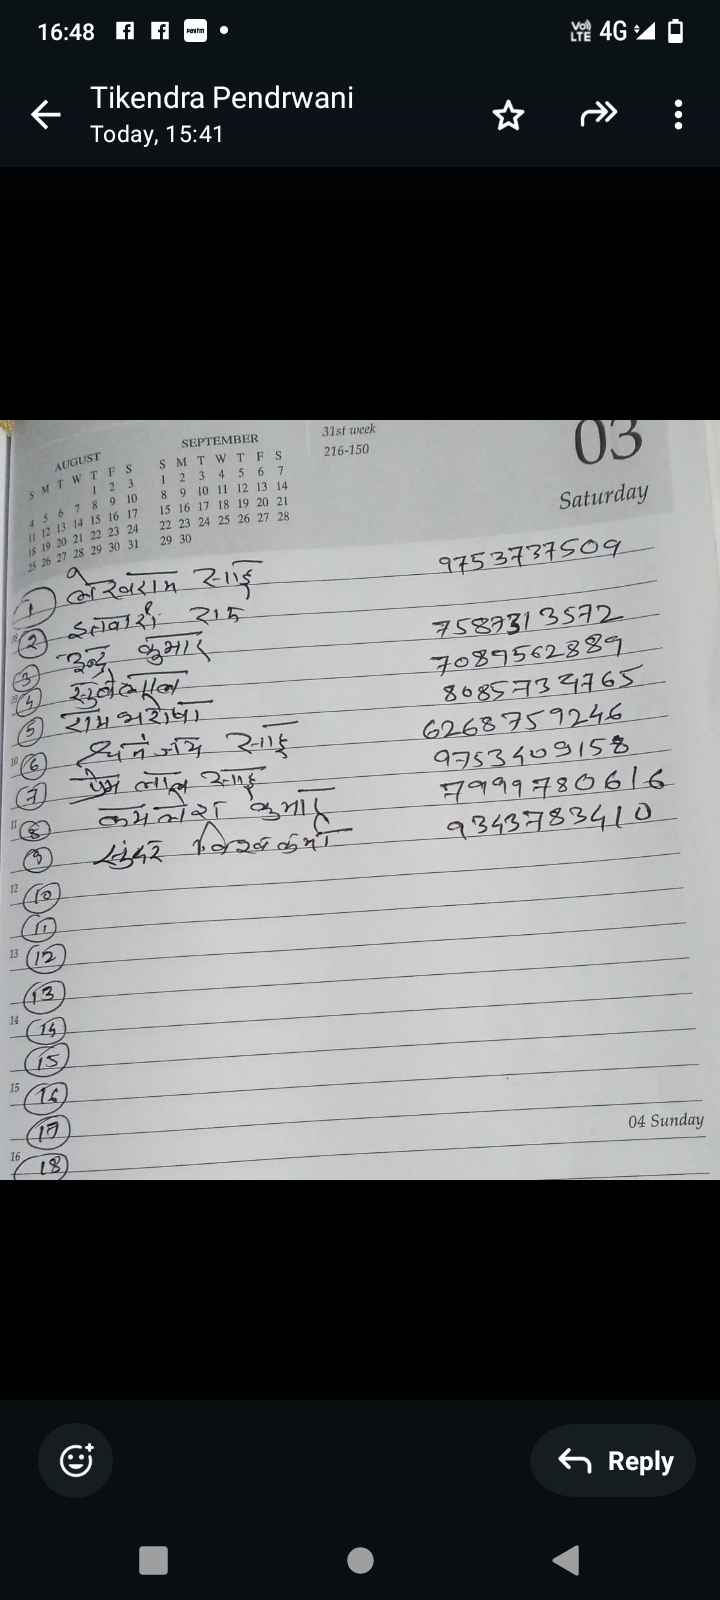 16:48 Paytm Vo) LTE 4G
Tikendra Pendrwani
Today, 15:41
AUGUST
S M T W T F S
1 2 3
4 5 6 7 8 9 10
11 12 13 14 15 16 17
18 19 20 21 22 23 24
25 26 27 28 29 30 31
SEPTEMBER
S M T W T F S
1 2 3 4 5 6 7
8 9 10 11 12 13 14
15 16 17 18 19 20 21
22 23 24 25 26 27 28
29 30
31st week
216-150
03
Saturday
1 लेखराम साहू 9753737509
2 इतवारी राम
3 इन्द्र कुमार 7587313572
4 7089562889
5 राम भरोषा 8085734765
6 धनंजय साहू 6268759246
7 प्रेम लाल साहू 9753409158
8 कमलेश कुमार 7999780616
9 सुंदर विश्वकर्मा 9343783410
10
11
12
13
14
15
16
17
18
04 Sunday
Reply